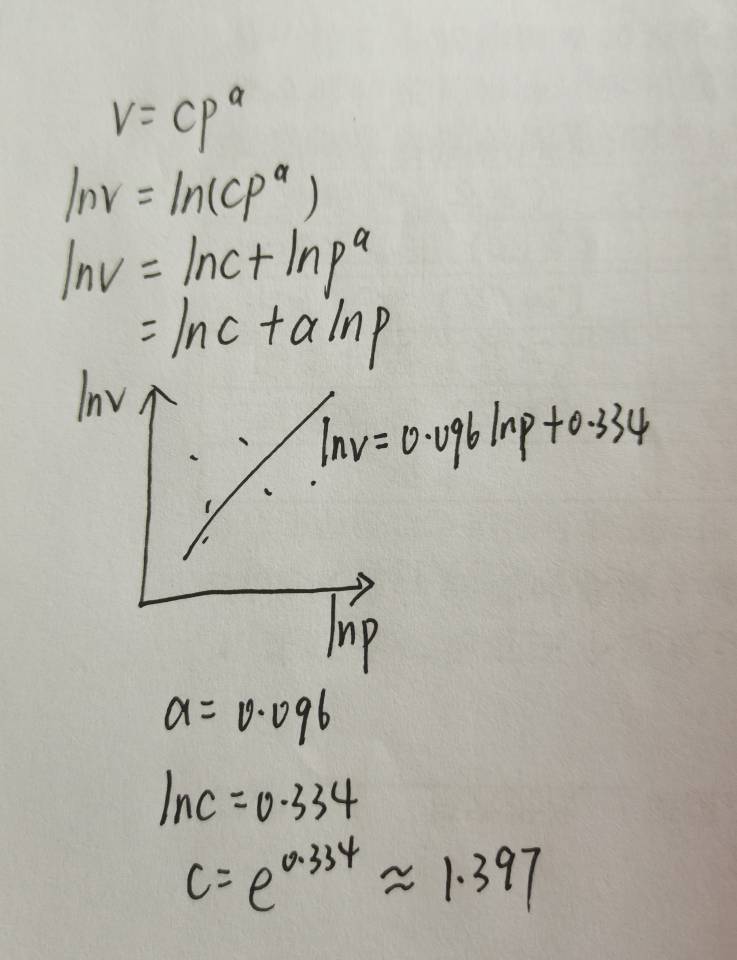 v = cp^a
lnv = ln(cp^a)
lnv = lnc + lnp^a
= lnc + a lnp
lnv
lnv = 0.096 lnp + 0.334
lnp
a = 0.096
lnc = 0.334
c = e^0.334 ≈ 1.397